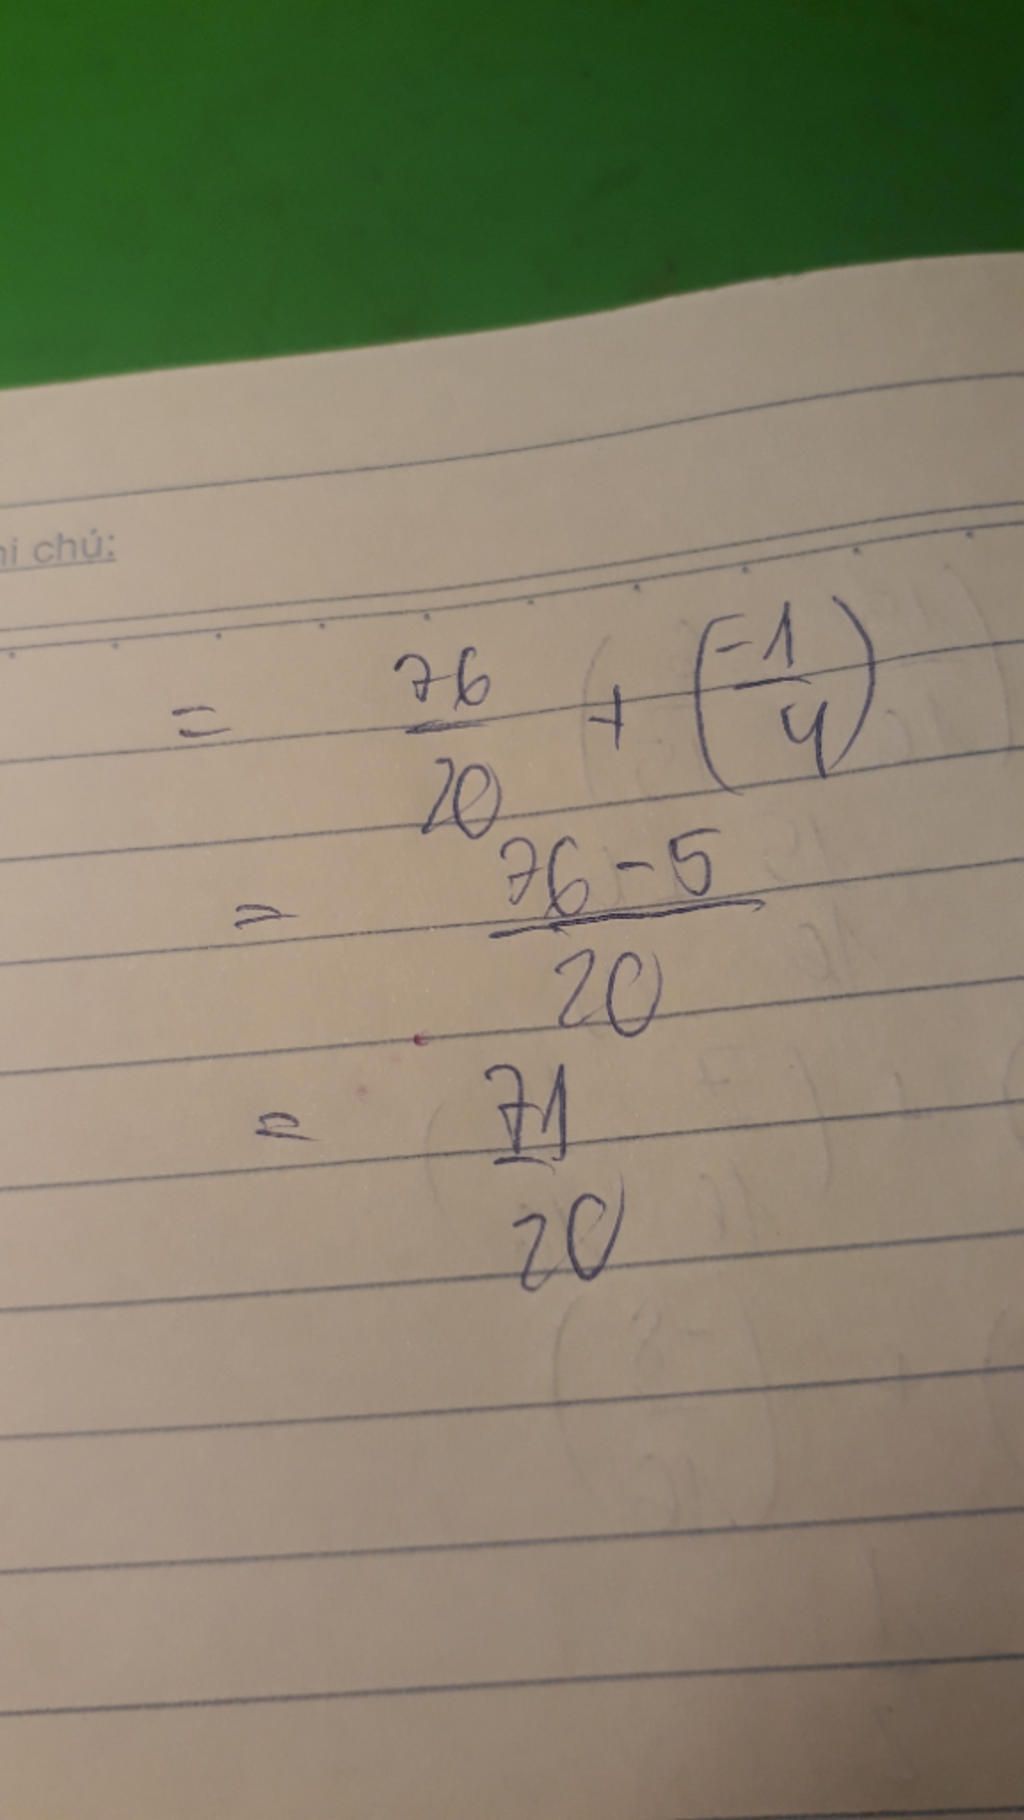 hi chú:
= 76/20 + (-1/4)
= 76 - 5/20
= 71/20